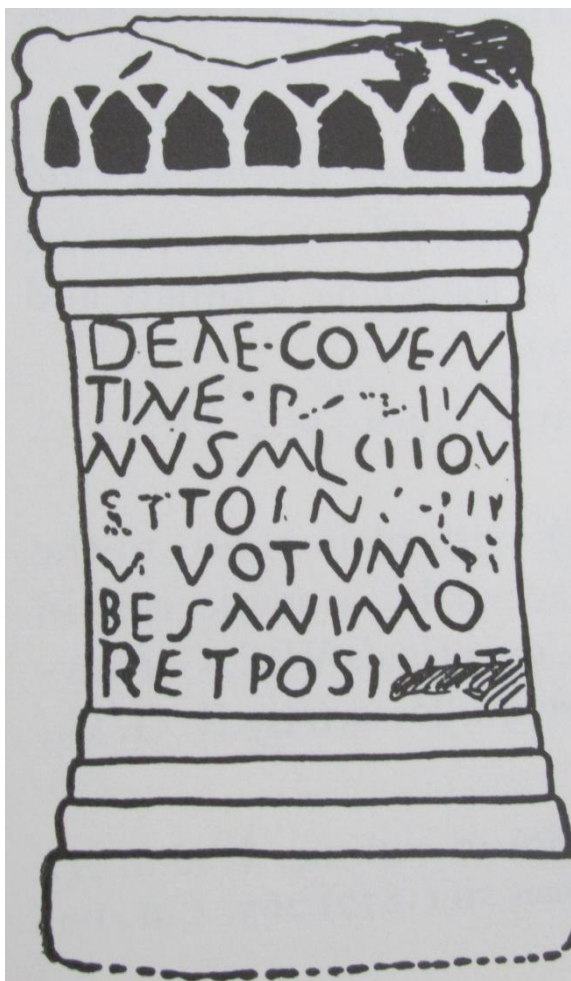 DEAE·COVEN
TINE·
NVSMLCIIOV
VOTVM
BESANIMO
RETPOSIVIT